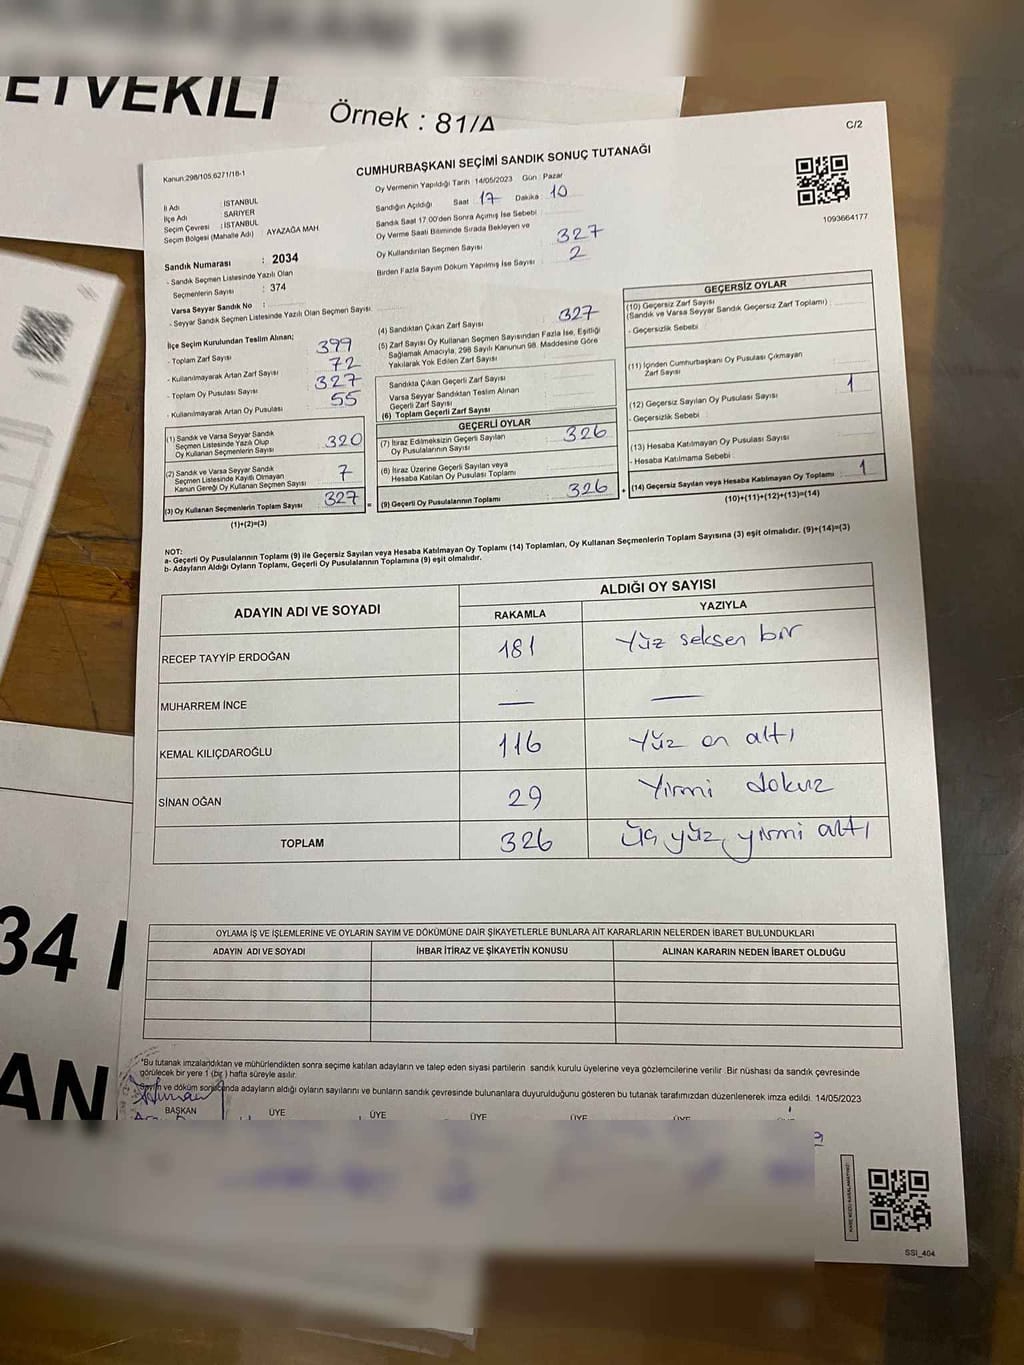 ETVEKİLİ
Örnek : 81/A
C/2
Kanun:298/105,6271/18-1
CUMHURBAŞKANI SEÇİMİ SANDIK SONUÇ TUTANAĞI
Oy Vermenin Yapıldığı Tarih : 14/05/2023 Gün : Pazar
İl Adı : İSTANBUL
İlçe Adı : SARIYER
Seçim Çevresi : İSTANBUL
Seçim Bölgesi (Mahalle Adı) : AYAZAĞA MAH.
Sandığın Açıldığı Saat 17 Dakika 10
Sandık Saat 17.00'den Sonra Açılmış İse Sebebi
Oy Verme Saati Bitiminde Sırada Bekleyen ve
Oy Kullandırılan Seçmen Sayısı 327
Birden Fazla Sayım Döküm Yapılmış İse Sayısı 2
1093664177
Sandık Numarası : 2034
- Sandık Seçmen Listesinde Yazılı Olan
Seçmenlerin Sayısı : 374
Varsa Seyyar Sandık No :
- Seyyar Sandık Seçmen Listesinde Yazılı Olan Seçmen Sayısı:
İlçe Seçim Kurulundan Teslim Alınan;
- Toplam Zarf Sayısı 399
- Kullanılmayarak Artan Zarf Sayısı 72
- Toplam Oy Pusulası Sayısı 327
- Kullanılmayarak Artan Oy Pusulası 55
(1) Sandık ve Varsa Seyyar Sandık
Seçmen Listesinde Yazılı Olup
Oy Kullanan Seçmenlerin Sayısı 320
(2) Sandık ve Varsa Seyyar Sandık
Seçmen Listesinde Kayıtlı Olmayan
Kanun Gereği Oy Kullanan Seçmen Sayısı 7
(3) Oy Kullanan Seçmenlerin Toplam Sayısı 327 =
(1)+(2)=(3)
(4) Sandıktan Çıkan Zarf Sayısı 327
(5) Zarf Sayısı Oy Kullanan Seçmen Sayısından Fazla İse, Eşitliği
Sağlamak Amacıyla, 298 Sayılı Kanunun 98. Maddesine Göre
Yakılarak Yok Edilen Zarf Sayısı
Sandıkta Çıkan Geçerli Zarf Sayısı
Varsa Seyyar Sandıktan Teslim Alınan
Geçerli Zarf Sayısı
(6) Toplam Geçerli Zarf Sayısı
GEÇERLİ OYLAR
(7) İtiraz Edilmeksizin Geçerli Sayılan
Oy Pusulalarının Sayısı 326
(8) İtiraz Üzerine Geçerli Sayılan veya
Hesaba Katılan Oy Pusulası Toplamı
(9) Geçerli Oy Pusulalarının Toplamı 326 +
GEÇERSİZ OYLAR
(10) Geçersiz Zarf Sayısı
(Sandık ve Varsa Seyyar Sandık Geçersiz Zarf Toplamı)
- Geçersizlik Sebebi :
(11) İçinden Cumhurbaşkanı Oy Pusulası Çıkmayan
Zarf Sayısı
(12) Geçersiz Sayılan Oy Pusulası Sayısı 1
- Geçersizlik Sebebi :
(13) Hesaba Katılmayan Oy Pusulası Sayısı
- Hesaba Katılmama Sebebi :
(14) Geçersiz Sayılan veya Hesaba Katılmayan Oy Toplamı 1
(10)+(11)+(12)+(13)=(14)
NOT:
a- Geçerli Oy Pusulalarının Toplamı (9) ile Geçersiz Sayılan veya Hesaba Katılmayan Oy Toplamı (14) Toplamları, Oy Kullanan Seçmenlerin Toplam Sayısına (3) eşit olmalıdır. (9)+(14)=(3)
b- Adayların Aldığı Oyların Toplamı, Geçerli Oy Pusulalarının Toplamına (9) eşit olmalıdır.
ADAYIN ADI VE SOYADI
ALDIĞI OY SAYISI
RAKAMLA YAZIYLA
RECEP TAYYİP ERDOĞAN 181 Yüz seksen bir
MUHARREM İNCE — —
KEMAL KILIÇDAROĞLU 116 Yüz on altı
SİNAN OĞAN 29 Yirmi dokuz
TOPLAM 326 Üç yüz yirmi altı
OYLAMA İŞ VE İŞLEMLERİNE VE OYLARIN SAYIM VE DÖKÜMÜNE DAİR ŞİKAYETLERLE BUNLARA AİT KARARLARIN NELERDEN İBARET BULUNDUKLARI
ADAYIN ADI VE SOYADI İHBAR İTİRAZ VE ŞİKAYETİN KONUSU ALINAN KARARIN NEDEN İBARET OLDUĞU
34
AN
*Bu tutanak imzalandıktan ve mühürlendikten sonra seçime katılan adayların ve talep eden siyasi partilerin sandık kurulu üyelerine veya gözlemcilerine verilir. Bir nüshası da sandık çevresinde
görülecek bir yere 1 (bir) hafta süreyle asılır.
Sayım ve döküm sonucunda adayların aldığı oyların sayılarını ve bunların sandık çevresinde bulunanlara duyurulduğunu gösteren bu tutanak tarafımızdan düzenlenerek imza edildi. 14/05/2023
BAŞKAN ÜYE ÜYE ÜYE ÜYE ÜYE
SSI_404